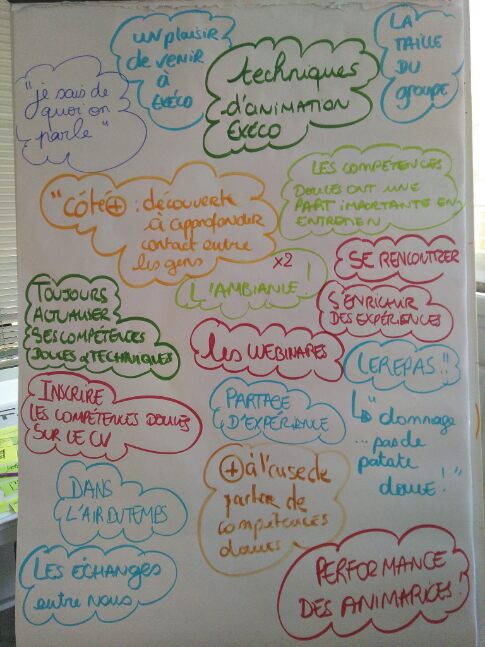 un plaisir
de venir
à
EXÉCO
LA
TAILLE
DU
groupe
"je sais de
quoi on
parle"
techniques
d'animation
EXÉCO
LES COMPÉTENCES
DOUCES ONT UNE
PART IMPORTANTE EN
ENTRETIEN
"CÔTÉ + : découverte
à approfondir
contact entre
les gens
x2
L'AMBIANCE !
SE RENCONTRER
S'ENRICHIR
DES EXPÉRIENCES
TOUJOURS
ACTUALISER
SES COMPÉTENCES
DOUCES & TECHNIQUES
les WEBINARES
LE REPAS !!
↳ "dommage
... pas de
patate
douce !"
INSCRIRE
LES COMPÉTENCES DOUCES
SUR LE CV
PARTAGE
D'EXPÉRIENCE
+ à l'aise de
parler de
compétences
douces
DANS
L'AIR DU TEMPS
LES ÉCHANGES
entre nous
PERFORMANCE
DES ANIMATRICES !